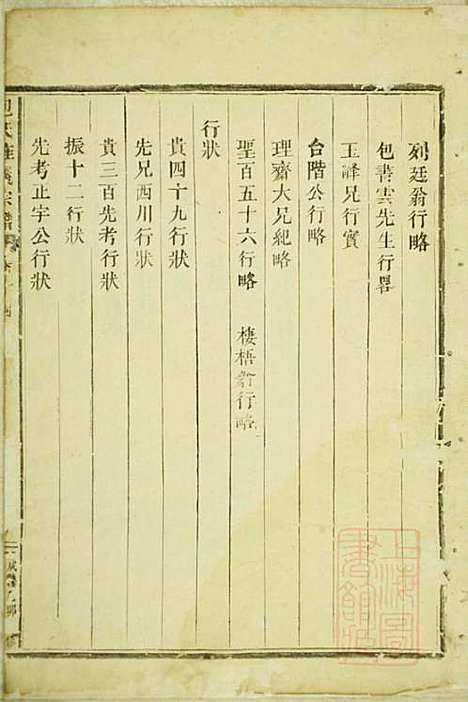 列廷翁行略
包書雲先生行畧
玉峄兄行實
台階公行略
理齋大兄紀略
聖百五十六行略 棲梧翁行略
行狀
貴四十九行狀
先兄西川行狀
貴三百先考行狀
振十二行狀
先考正宇公行狀
包氏 宗譜